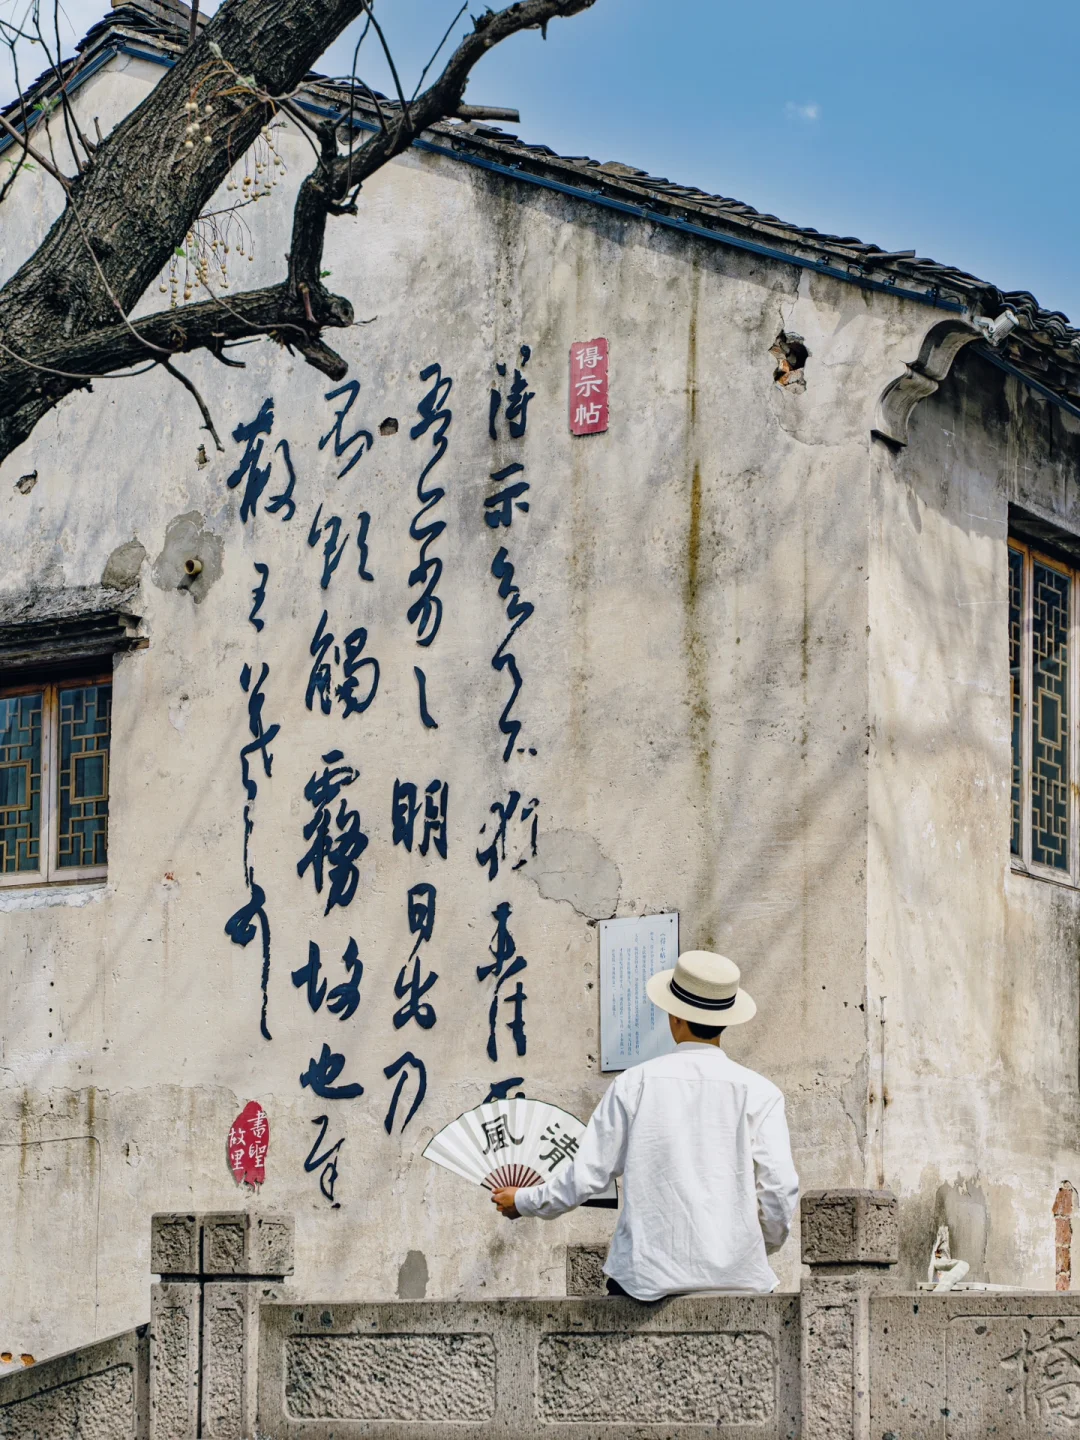 得示帖
得示知足下猶未佳
吾亦劣劣明日出乃
行不欲觸霧故也遲
散王羲之頓首
書聖
故里
清風
橋